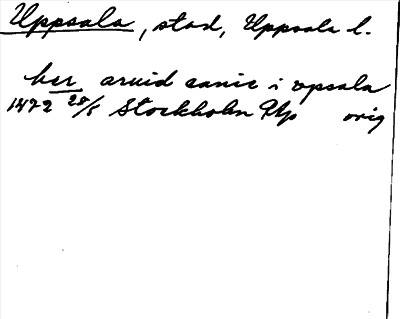 Uppsala, stad, Uppsala l.
her aruid canic i vpsala
1472 28/5 Stockholm Up orig